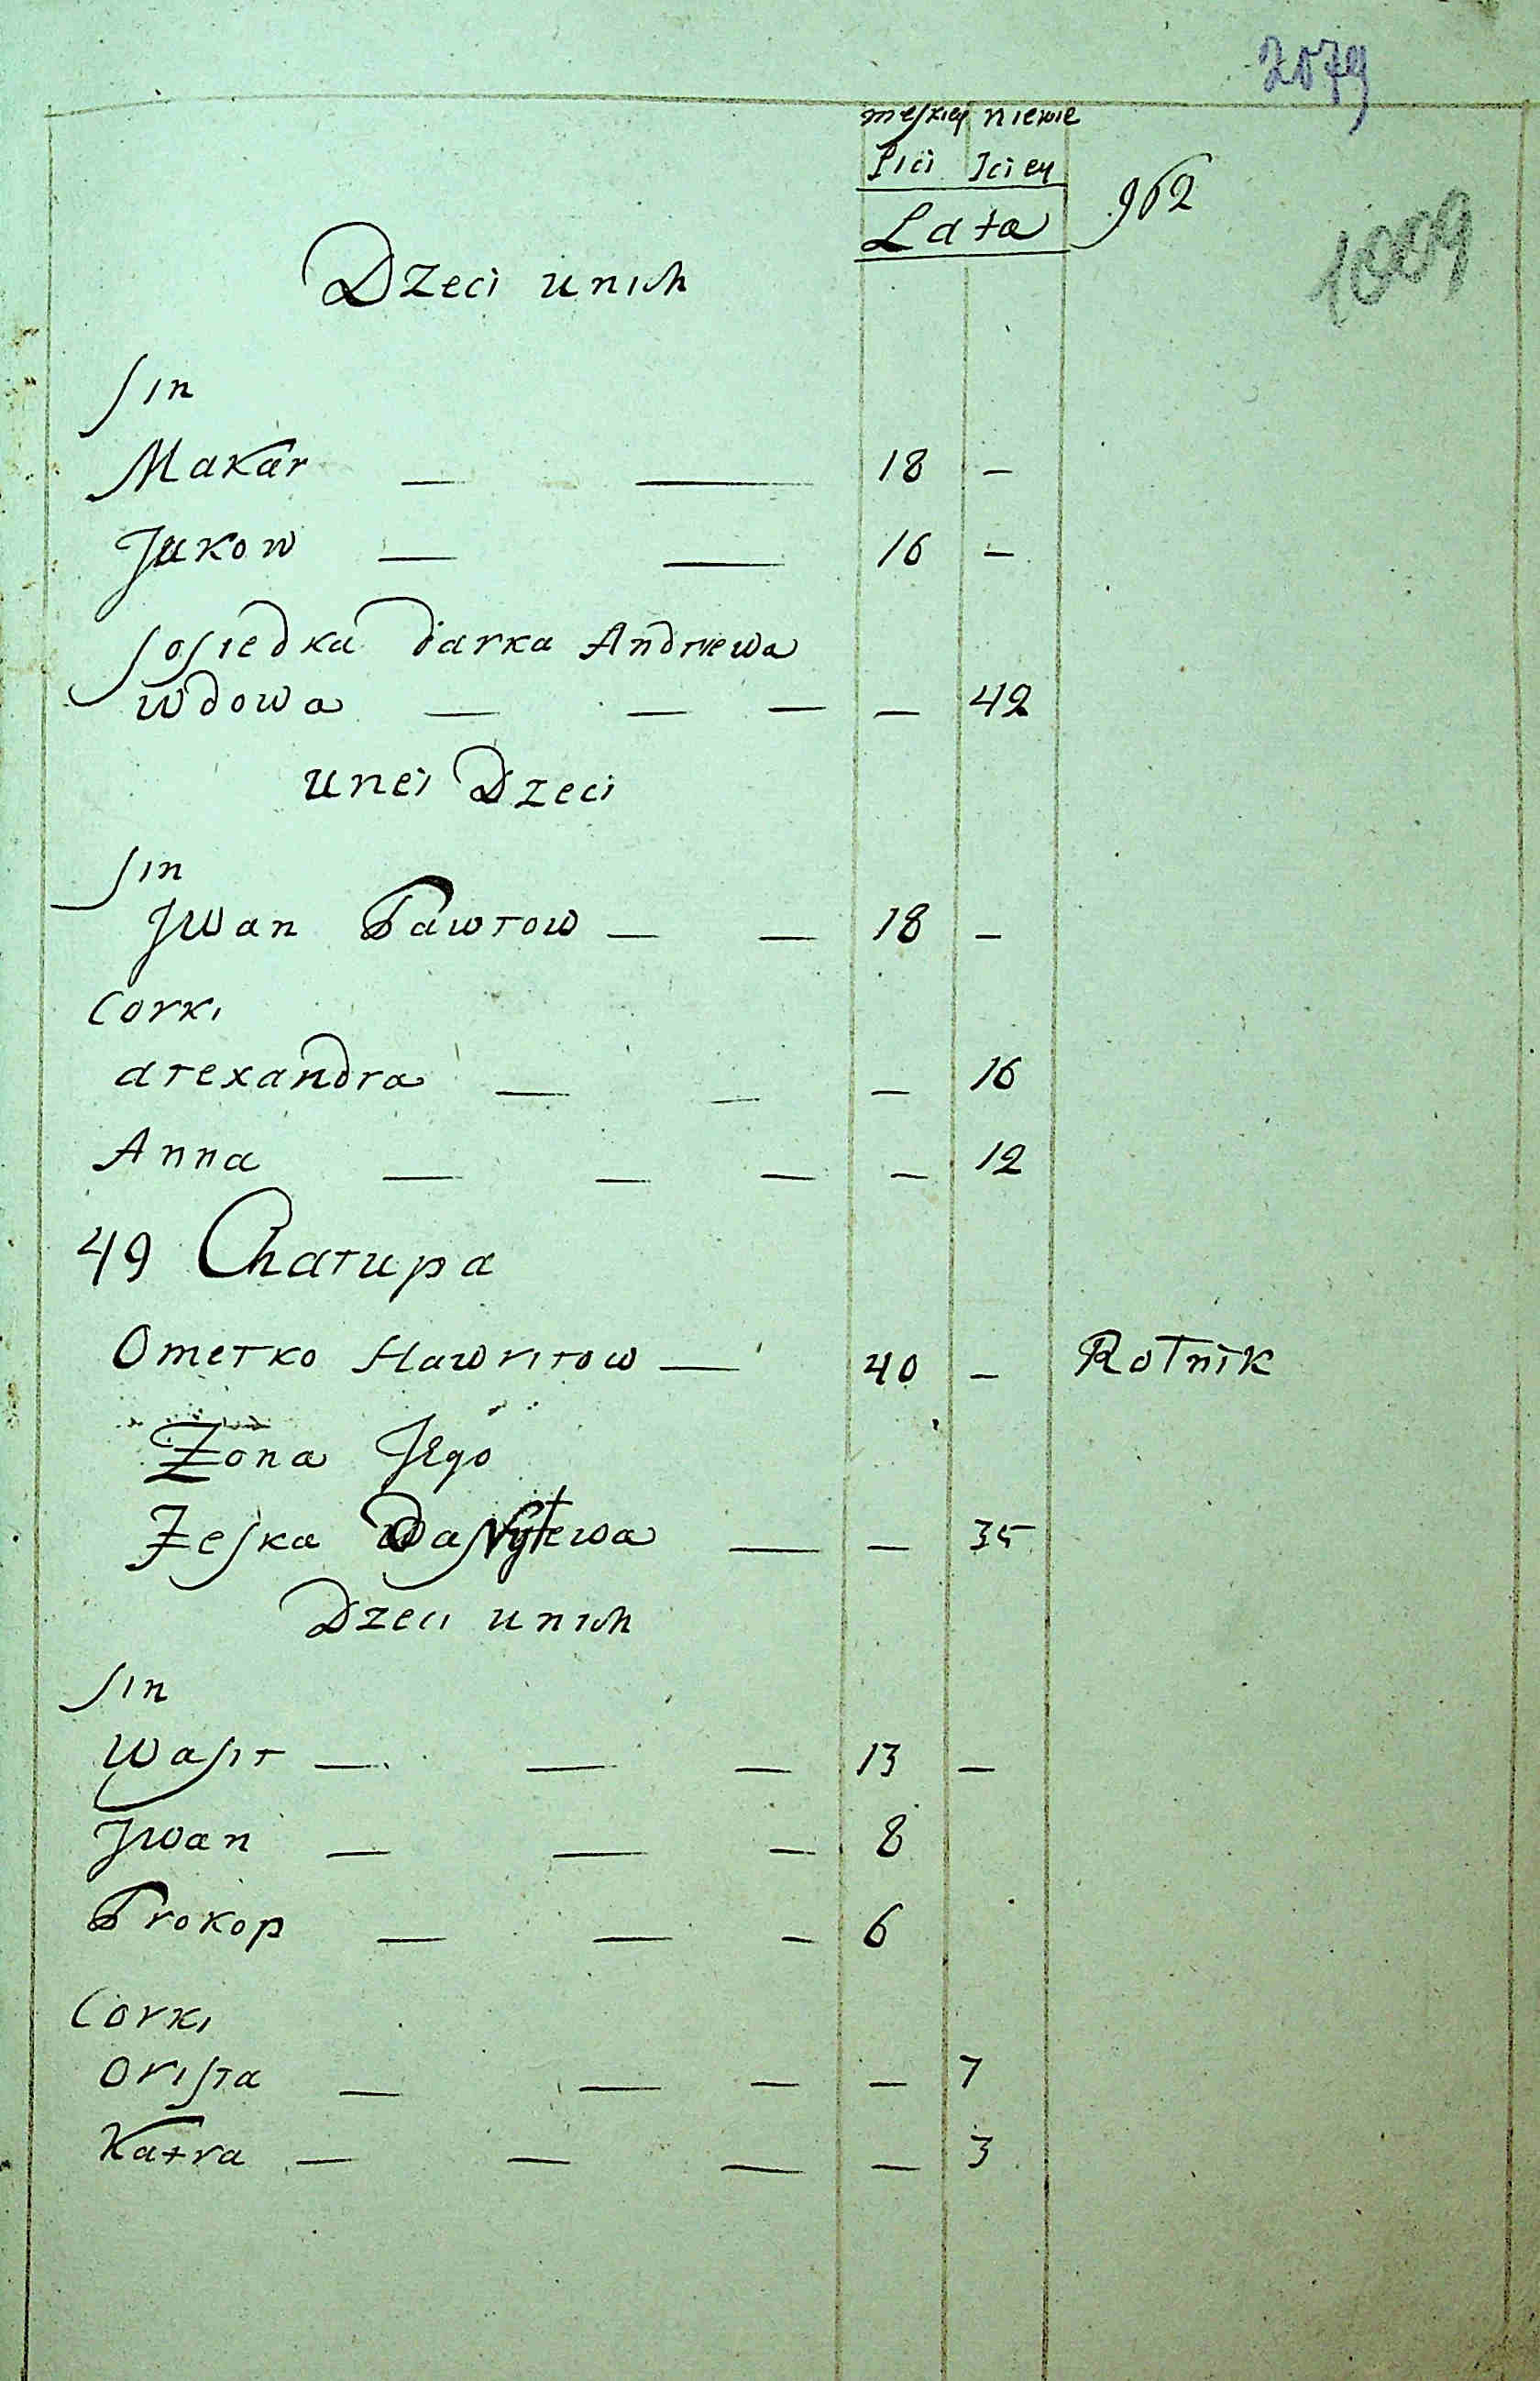 2079
meskiey niewie
Płci Sciey
Lata 962
1009
Dzeci unich
Sin
Makar — — 18 —
Jakow — — 16 —
Sosiedka Darka Andriewa
wdowa — — — — 42
unei Dzeci
Sin
Jwan Pawłow — — 18 —
Corki
alexandra — — — 16
Anna — — — — 12
49 Chałupa
Omelko Hawriłow — 40 — Rolnik
Żona Jego
Feska Wasylewa — — 35
Dzeci unich
Sin
Wasil — — — 13 —
Jwan — — — 8
Prokop — — — 6
Corki
Orisia — — — — 7
Katra — — — — 3